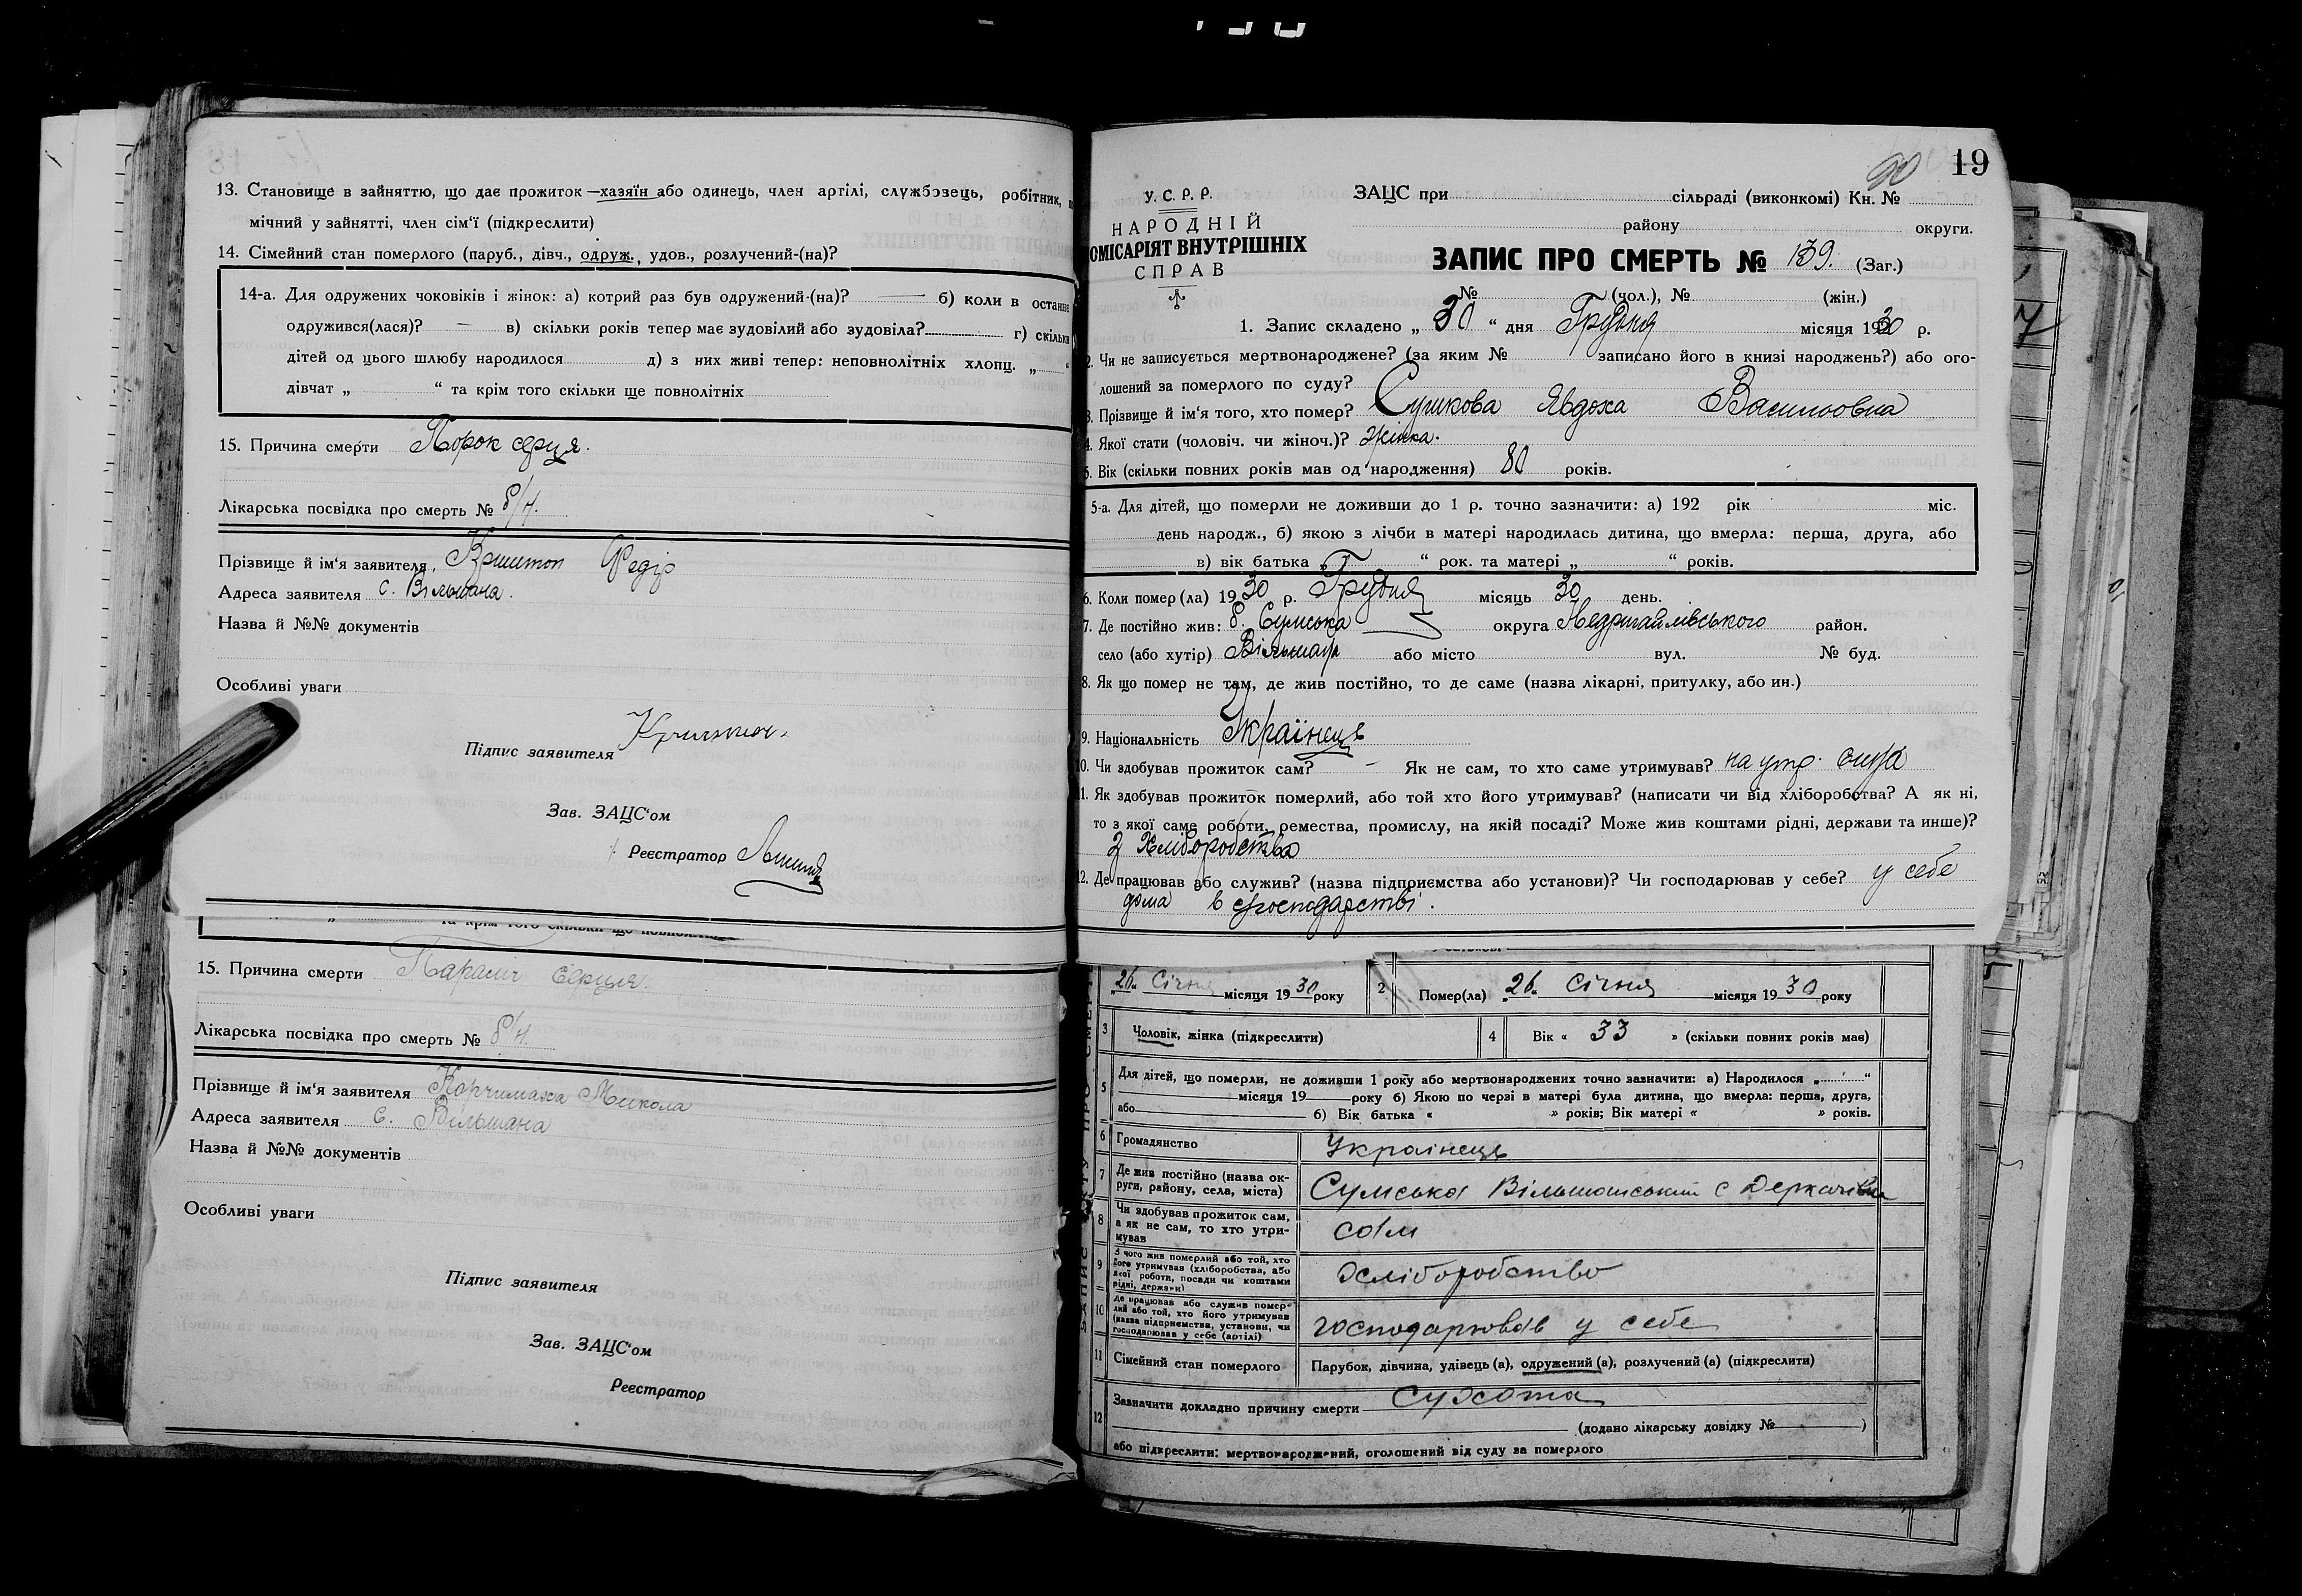 13. Становище в зайняттю, що дає прожиток — хазяїн або одинець, член артілі, службовець, робітник,
мічний у зайнятті, член сім'ї (підкреслити)
14. Сімейний стан померлого (паруб., дівч., одруж., удов., розлучений-(на)?
14-а. Для одружених чоковіків і жінок: а) котрий раз був одружений-(на)? — б) коли в останнє
одружився(лася)? — в) скільки років тепер має зудовілий або зудовіла? г) скільки
дітей од цього шлюбу народилося д) з них живі тепер: неповнолітніх хлопц. „ “
дівчат „ “ та крім того скільки ще повнолітніх
15. Причина смерти Порок серця.
Лікарська посвідка про смерть № б/н.
Прізвище й ім'я заявителя Федір
Адреса заявителя с. Вільшана.
Назва й №№ документів
Особливі уваги
Підпис заявителя
Зав. ЗАЦС'ом
Реєстратор
та крім того скільки ще повнолітніх
15. Причина смерти Параліч серця.
Лікарська посвідка про смерть № б/н.
Прізвище й ім'я заявителя Корчимаха Микола
Адреса заявителя с. Вільшана
Назва й №№ документів
Особливі уваги
Підпис заявителя
Зав. ЗАЦС'ом
Реєстратор
19
20
У. С. Р. Р.
НАРОДНІЙ
ОМІСАРІЯТ ВНУТРІШНІХ
СПРАВ
ЗАЦС при сільраді (виконкомі) Кн. №
району округи.
ЗАПИС ПРО СМЕРТЬ № 139. (Заг.)
№ (чол.), № (жін.)
1. Запис складено „ 30 “ дня Грудня місяця 1930 р.
2. Чи не записується мертвонароджене? (за яким № записано його в книзі народжень?) або ого-
лошений за померлого по суду?
3. Прізвище й ім'я того, хто помер? Сушкова Явдоха Васильовна
4. Якої стати (чоловіч. чи жіноч.)? Жінка.
5. Вік (скільки повних років мав од народження) 80 років.
5-а. Для дітей, що померли не доживши до 1 р. точно зазначити: а) 192 рік міс.
день народж., б) якою з лічби в матері народилась дитина, що вмерла: перша, друга, або
в) вік батька „ “ рок. та матері „ “ років.
6. Коли помер(ла) 1930 р. Грудня місяць 30 день.
7. Де постійно жив: б. Сумська округа Недригайлівського район.
село (або хутір) Вільшана або місто вул. № буд.
8. Як що помер не там, де жив постійно, то де саме (назва лікарні, притулку, або ин.)
9. Національність Українець
10. Чи здобував прожиток сам? — Як не сам, то хто саме утримував? на утр. сина
11. Як здобував прожиток померлий, або той хто його утримував? (написати чи від хліборобства? А як ні,
то з якої саме роботи, ремества, промислу, на якій посаді? Може жив коштами рідні, держави та инше)?
З Хліборобства
12. Де працював або служив? (назва підприємства або установи)? Чи господарював у себе? у себе
дома в господарстві.
„26“ Січня місяця 1930 року 2 Помер(ла) „26“ Січня місяця 1930 року
3 Чоловік, жінка (підкреслити) 4 Вік « 33 » (скільки повних років має)
5 Для дітей, що померли, не доживши 1 року або мертвонароджених точно зазначити: а) Народилося „ “
місяця 19 року б) Якою по черзі в матері була дитина, що вмерла: перша, друга,
або б) Вік батька « » років; Вік матері « » років.
6 Громадянство Українець
7 Де жив постійно (назва ок-
руги, району, села, міста) Сумська Вільшанський с Деркачівка
8 Чи здобував прожиток сам,
а як не сам, то хто утри-
мував сам
9 З чого жив померлий або той, хто
його утримував (хліборобства, або
якої роботи, посади чи коштами
рідні, держави) Хліборобство
10 Де працював або служив помер-
лий або той, хто його утримував
(назва підприємства, установи, чи
господарював у себе (артілі) господарював у себе
11 Сімейний стан померлого Парубок, дівчина, удівець(а), одружений(а), розлучений(а) (підкреслити)
12 Зазначити докладно причину смерти Сухота
(додано лікарську довідку № )
або підкреслити: мертвонароджений, оголошений від суду за померлого